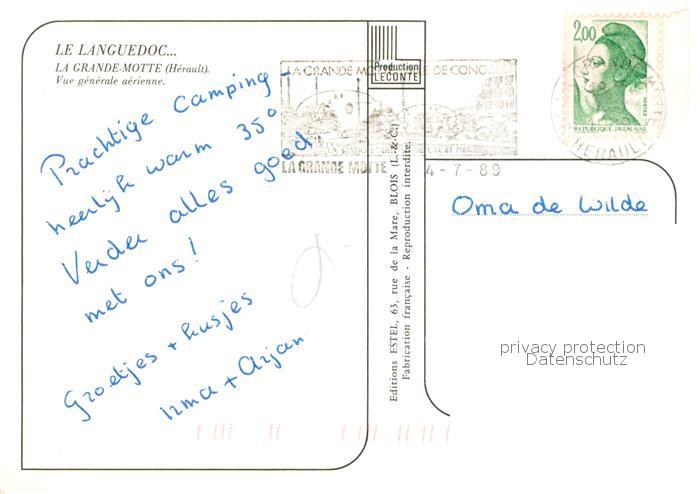 LE LANGUEDOC...
LA GRANDE-MOTTE (Hérault).
Vue générale aérienne.
Prachtige Camping -
heerlijk warm 35°
Verder alles goed
met ons!
Groetjes + kusjes
Irma + Arjan
Production
LECONTE
LA GRANDE MOTTE
4-7-89
Editions ESTEL, 63, rue de la Mare, BLOIS (L.-&-C.)
Fabrication française - Reproduction interdite.
2,00
POSTES
REPUBLIQUE FRANÇAISE
HERAULT
Oma de Wilde
privacy protection
Datenschutz